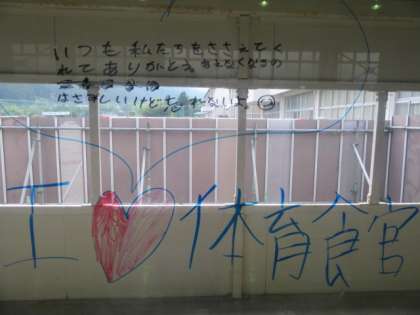 いつも私たちをささえてく
れてありがとう。あえなくなるの
はさみしいけど忘れないよ
I ♥ 体育館